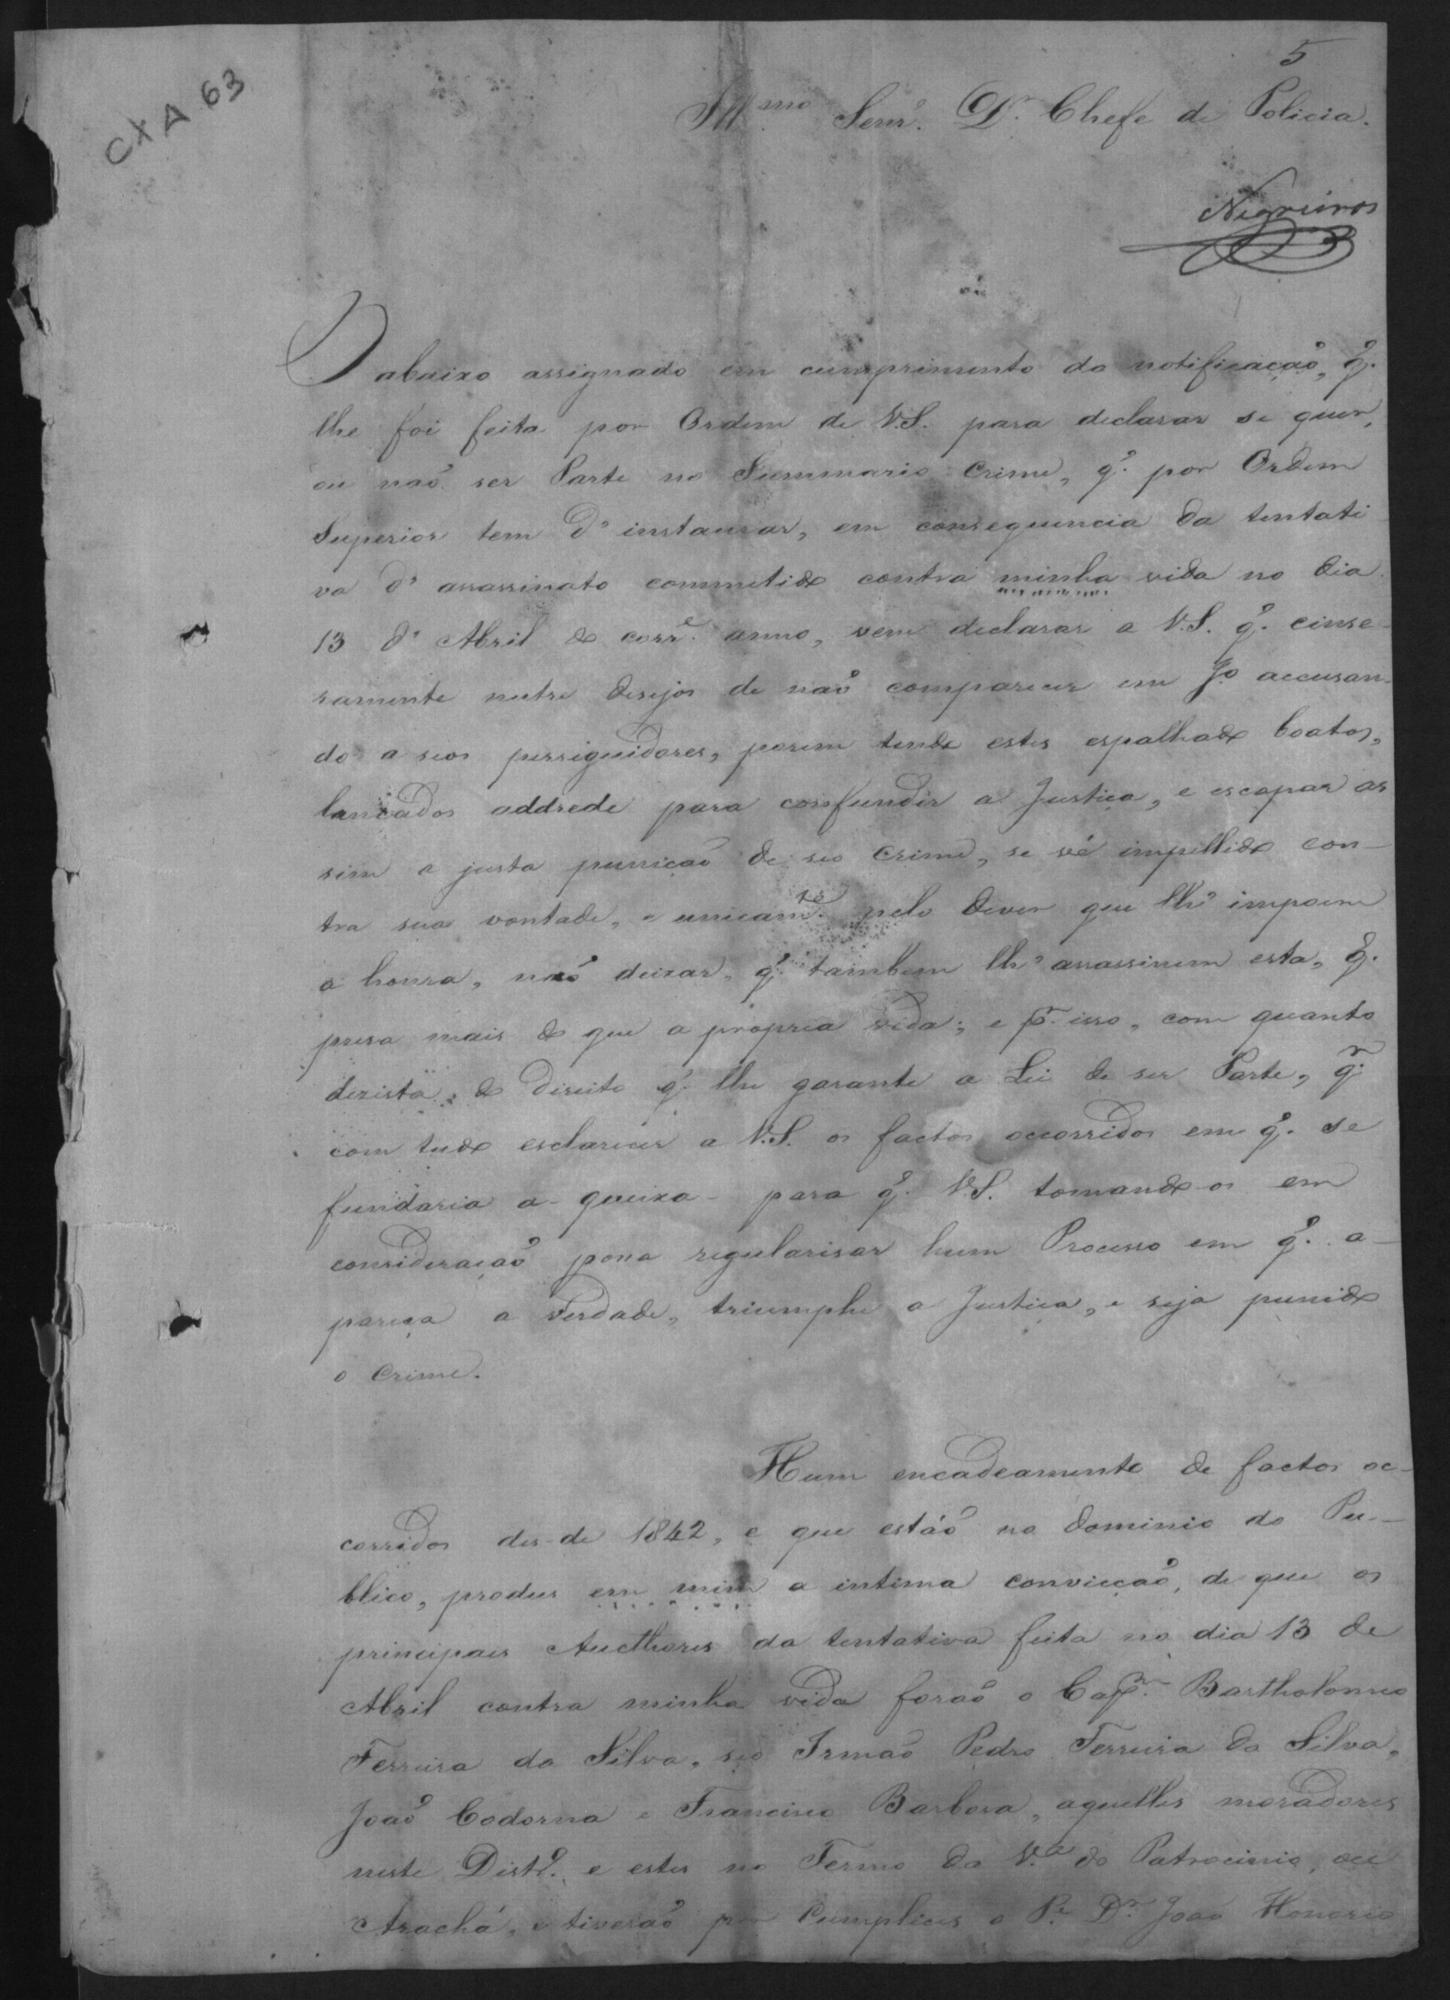 5
CXA 63
Ill.mo Senr. Dr. Chefe de Policia.
Negreiros
O abaixo assignado em cumprimento da notificação, q.
lhe foi feita por Ordem de V.S. para declarar se quer,
ou não ser Parte no Summario Crime, q. por Ordem
Superior tem d' instaurar, em consequencia da tentati
va d' assassinato commetido contra minha vida no dia
13 d' Abril do corre. anno, vem declarar a V.S. q. cinse-
ramente nutre desejos de não comparecer em Jo. accusan-
do a seos perseguidores, porem tendo estes espalhado boatos,
lancados addrede para confundir a Justiça, e escapar as
sim a justa punicaõ de seo crime, se vê impellido con-
tra sua vontade, e unicamte. pelo dever que lhe impoem
a honra, não deixar, q. tambem lh' assassinem esta, q.
presa mais do que a propria vida; e pr. isso, com quanto
dezista do direito q. lhe garante a Lei de ser Parte, qr.
com tudo esclarecer a V.S. os factos occorridos em q. se
fundaria a queixa - para q. V.S. tomando-os em
consideração possa regularisar hum Processo em q. a-
pareça a verdade, triumphe a Justiça, e seja punido
o crime.
Hum encadeamento de factos oc-
corridos des-de 1842, e que estáõ no dominio do Pu-
blico, produs em mim a intima convicção, de que os
principaes Aucthores da tentativa feita no dia 13 de
Abril contra minha vida foraõ o Capm. Bartholomeo
Ferreira da Silva, seo Irmaõ Pedro Ferreira da Silva,
Joaõ Codorna e Francisco Barbosa, aquelles moradores
neste Disto. e estes no Termo da V.a do Patrocinio, ou
Arachá, e tiveraõ por Cumplices o Pe. Dr. Joaõ Honorio